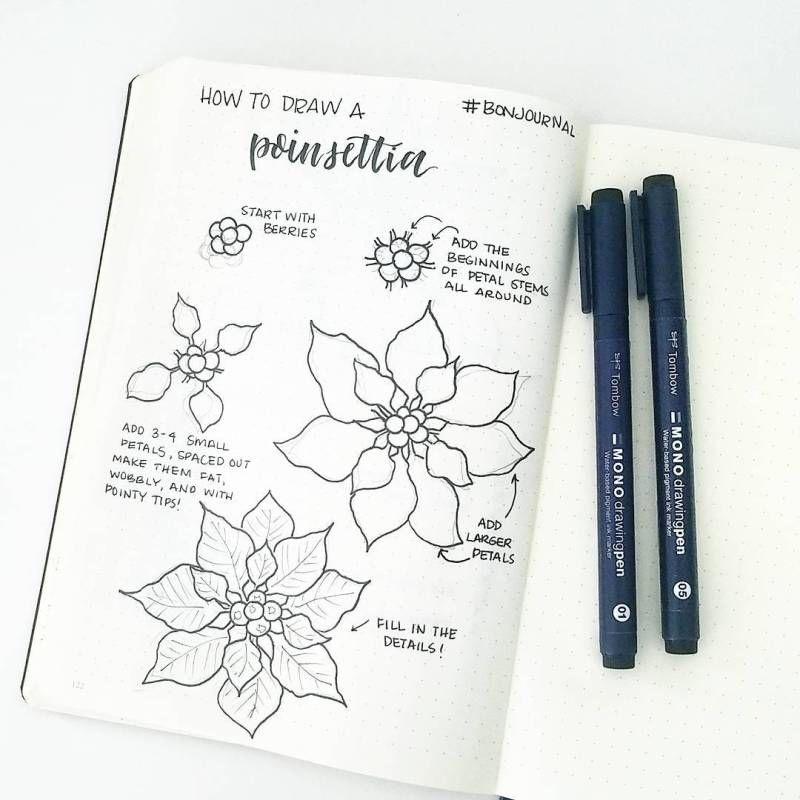 HOW TO DRAW A
#BONJOURNAL
poinsettia
START WITH
BERRIES
ADD THE
BEGINNINGS
OF PETAL STEMS
ALL AROUND
ADD 3-4 SMALL
PETALS, SPACED OUT
MAKE THEM FAT,
WOBBLY, AND WITH
POINTY TIPS!
ADD
LARGER
PETALS
FILL IN THE
DETAILS!
122
Tombow
MONO drawingpen
Water-based pigment ink marker
01
Tombow
MONO drawingpen
Water-based pigment ink marker
05